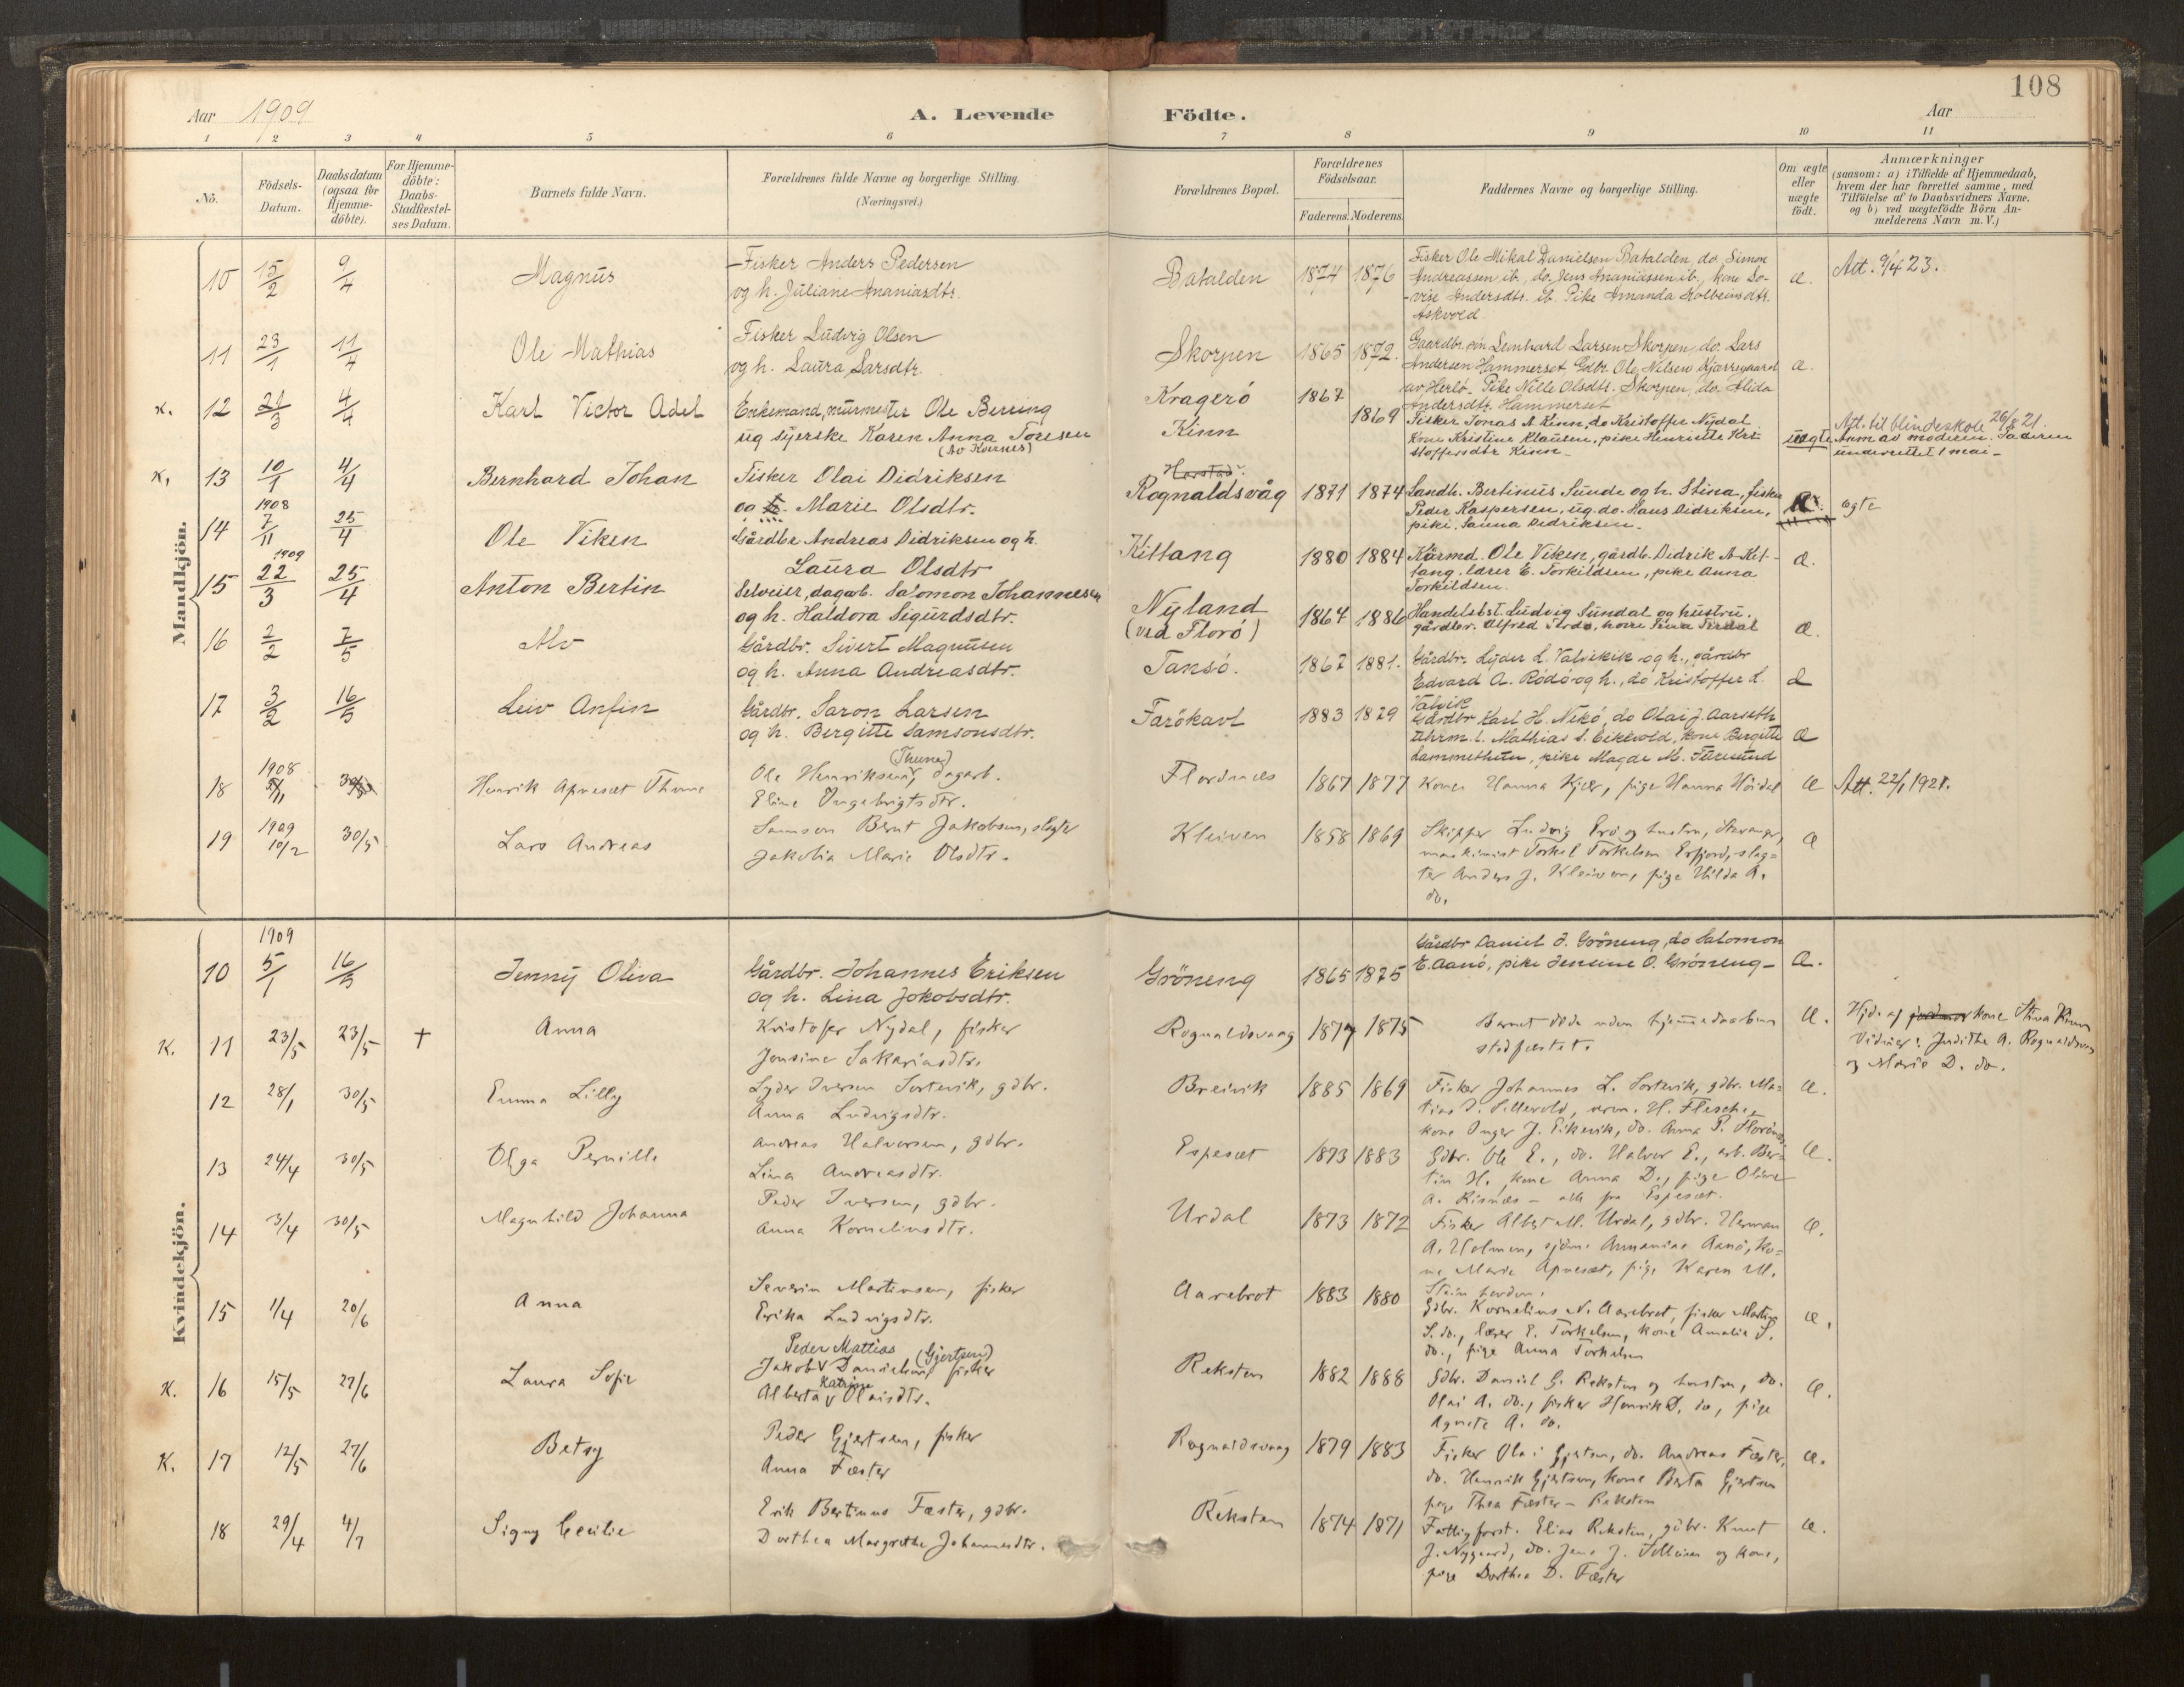 108
Aar 1909
A. Levende Fødte.
Aar
1 2 3 4 5 6 7 8 9 10 11
No.
Fødsels-Datum.
Daabsdatum (ogsaa for Hjemmedøbte).
For Hjemmedøbte: Daabs-Stadfæstelses Datum.
Barnets fulde Navn.
Forældrenes fulde Navne og borgerlige Stilling.
(Næringsvei.)
Forældrenes Bopæl.
Forældrenes Fødselsaar.
Faderens. Moderens.
Faddernes Navne og borgerlige Stilling.
Om ægte eller uægte født.
Anmærkninger
(saasom: a) i Tilfælde af Hjemmedaab,
hvem der har forrettet samme, med
Tilføielse af to Daabsvidners Navne,
og b) ved uægtefødte Börn An-
melderens Navn m. V.)
Mandkjön.
10 15/2 9/4 Magnus
Fisker Anders Pedersen
og h. Juliane Ananiasdtr.
Batalden 1874 1876
Fisker Ole Mikal Danielsen Batalden, do. Simon
Andreassen ib., do. Jens Ananiassen ib., kone Lo-
vise Andersdtr. ib. Pike Amanda Kolbeinsdtr.
Askvold
æ. Att. 9/4 23.
11 23/1 11/4 Ole Mathias
Fisker Ludvig Olsen
og h. Laura Larsdtr.
Skorpen 1865 1872.
Lenhard Larsen Skorpen, do. Lars
Andersen Hammerset Gdbr. Ole Nilsen Kjærregaard
av Herlø. Pike Nille Olsdtr. Skorpen, do. Alida
Andersdtr. Hammerset
æ.
K. 12 21/3 4/4 Karl Victor Adel
Enkemand, murmester Ole Bering
ug syerske Karen Anna Toresen
(Av Kvernes)
Kragerö 1867
Kinn 1869
Fisker Jonas A. Kinn, do Kristoffer Nydal
kone Kristine Klausen, pike Henriette Kri-
stoffersdtr Kinn
uægte
Att. til blindeskole 26/8 21.
Anm av moderen. Faderen
underrettet 1 mai
K. 13 10/1 4/4 Bernhard Johan
Fisker Olai Didriksen
og h. Marie Olsdtr.
Harstad
Rognaldsvåg 1871 1874
Landh. Bertinus Sunde og h. Stina, fisker
Peder Kaspersen, ug. do. Hans Didriksen,
pike Sanna Didriksen.
ægte
14 1908 7/11 25/4 Ole Viken
Gårdbr Andreas Didriksen og h.
Laura Olsdtr
Kittang 1880 1884
Kårmd. Ole Viken, gårdb. Didrik A. Kit-
tang, lærer E. Torkildsen, pike Anna
Torkildsen.
æ.
15 1909 22/3 25/4 Anton Bertin
Selveier, dagarb. Salomon Johannesen
og h. Haldora Sigurdsdtr.
Nyland
(ved Florö) 1864 1886
Handelsbst. Ludvig Sundal og hustru.
gårdbr. Alfred
æ.
16 2/2 2/5 Alv
Gårdbr. Sivert Magnusen
og h. Anna Andreasdtr.
Tansö. 1867 1881.
Gårdbr. Lyder L. Valvikik og h., gårdbr
Edvard A. Rödö og h., do Kristoffer L.
Valvik
æ
17 3/2 16/5 Leiv Anfin
Gårdbr. Saron Larsen
og h. Bergitte Samsonsdtr.
Farökavl 1883 1879
Gårdbr Karl H. Nekö, do Olai J. Aarseth
Mathias S. Eikevold, kone Bergitte
Lammethun, pike Magda M. Faresund
æ
18 1908 30/5 Henrik Apneset Thune
Ole Henriksen (Thune), dagarb.
Eline Ingebrigtsdtr.
Florönæs 1867 1877
Kone Hanna Kjær, pige Hanna Höidal
æ Att. 22/1 1921.
19 1909 10/2 30/5 Lars Andreas
Samson Bernt Jakobsen, slagter
Jakobia Marie Olsdtr.
Kleiven 1858 1869
Skipper Ludvig Erö og hustru, Stavanger,
maskinist Torkel Torkelsen Erfjord, slag-
ter Anders J. Kleiven, pige Hilda A.
do.
æ
Kvindekjön.
10 1909 5/1 16/5 Jenny Oliva
Gårdbr. Johannes Eriksen
og h. Lina Jokobsdtr.
Gröneng 1865 1875
Gårdbr Daniel J. Gröneng, do Salomon
E. Aanö, pike Jensine O. Gröneng
æ.
K. 11 23/5 23/5 + Anna
Kristofer Nydal, fisker
Jensine Sakariasdtr.
Rognaldsvaag 1877 1875
Barnet döde uden hjemmedaaben
stadfæstet.
æ.
Hjd. af jordmor kone Stina Kinn
Vidner: Judithe A. Rognaldsvaag
og Marie D. do.
12 28/1 30/5 Emma Lilly
Lyder Iversen Sortevik, gdbr.
Anna Ludvigsdtr.
Breivik 1885 1869
Fisker Johannes L. Sortevik, gdbr. Ma-
tias J. Sellevold, H. Flesche,
kone Inger J. Eikevik, do. Anna P. Florönæs
æ.
13 24/4 30/5 Olga Pernille
Andreas Halvorsen, gdbr.
Lina Andreasdtr.
Espeset 1873 1883
Gdbr. Ole E., do. Halvor E., arb. Ber-
tin H., kone Anna D., pige Oline
A. Risnæs – alle fra Espeset.
æ.
14 3/4 30/5 Magnhild Johanna
Peder Iversen, gdbr.
Anna Korneliusdtr.
Urdal 1873 1872
Fisker Albert M. Urdal, gdbr. Herman
A. Holmen, sjöm. Annanias Aanö, ko-
ne Marie Apneset, pige Karen M.
æ.
15 1/4 20/6 Anna
Severin Martinsen, fisker
Erika Ludvigsdtr.
Aarebrot 1883 1880
Gdbr. Kornelius N. Aarebrot, fisker Martin
S. do., lærer E. Torkelsen, kone Amalie S.
do., pige Anna Torkelsen
æ.
K. 16 15/5 27/6 Laura Sofie
Peder Mattias (Gjertsen)
Jakob V Danielsen, fisker
Katrine
Alberta V Olaisdtr.
Reksten 1882 1888
Gdbr. Daniel G. Reksten og hustru, do.
Olai A. do., fisker Henrik D. do, pige
Agnete A. do.
æ.
K. 17 12/5 27/6 Betsy
Peder Gjertsen, fisker
Anna Fæster
Rognaldsvaag 1879 1883
Fisker Olai Gjertsen, do. Andreas Fæster,
do. Henrik Gjertsen, kone Berta Gjertsen
pige Thea Fæster – Reksten
æ.
18 29/4 4/7 Signy Cecilie
Erik Bertinus Fæster, gdbr.
Dorthea Margrethe Johannesdtr.
Reksten 1874 1871
Fattigforst. Elias Reksten, gdbr. Knut
J. Nygaard, do. Jens J. og kone,
pige Dorthea D. Fæster
æ.